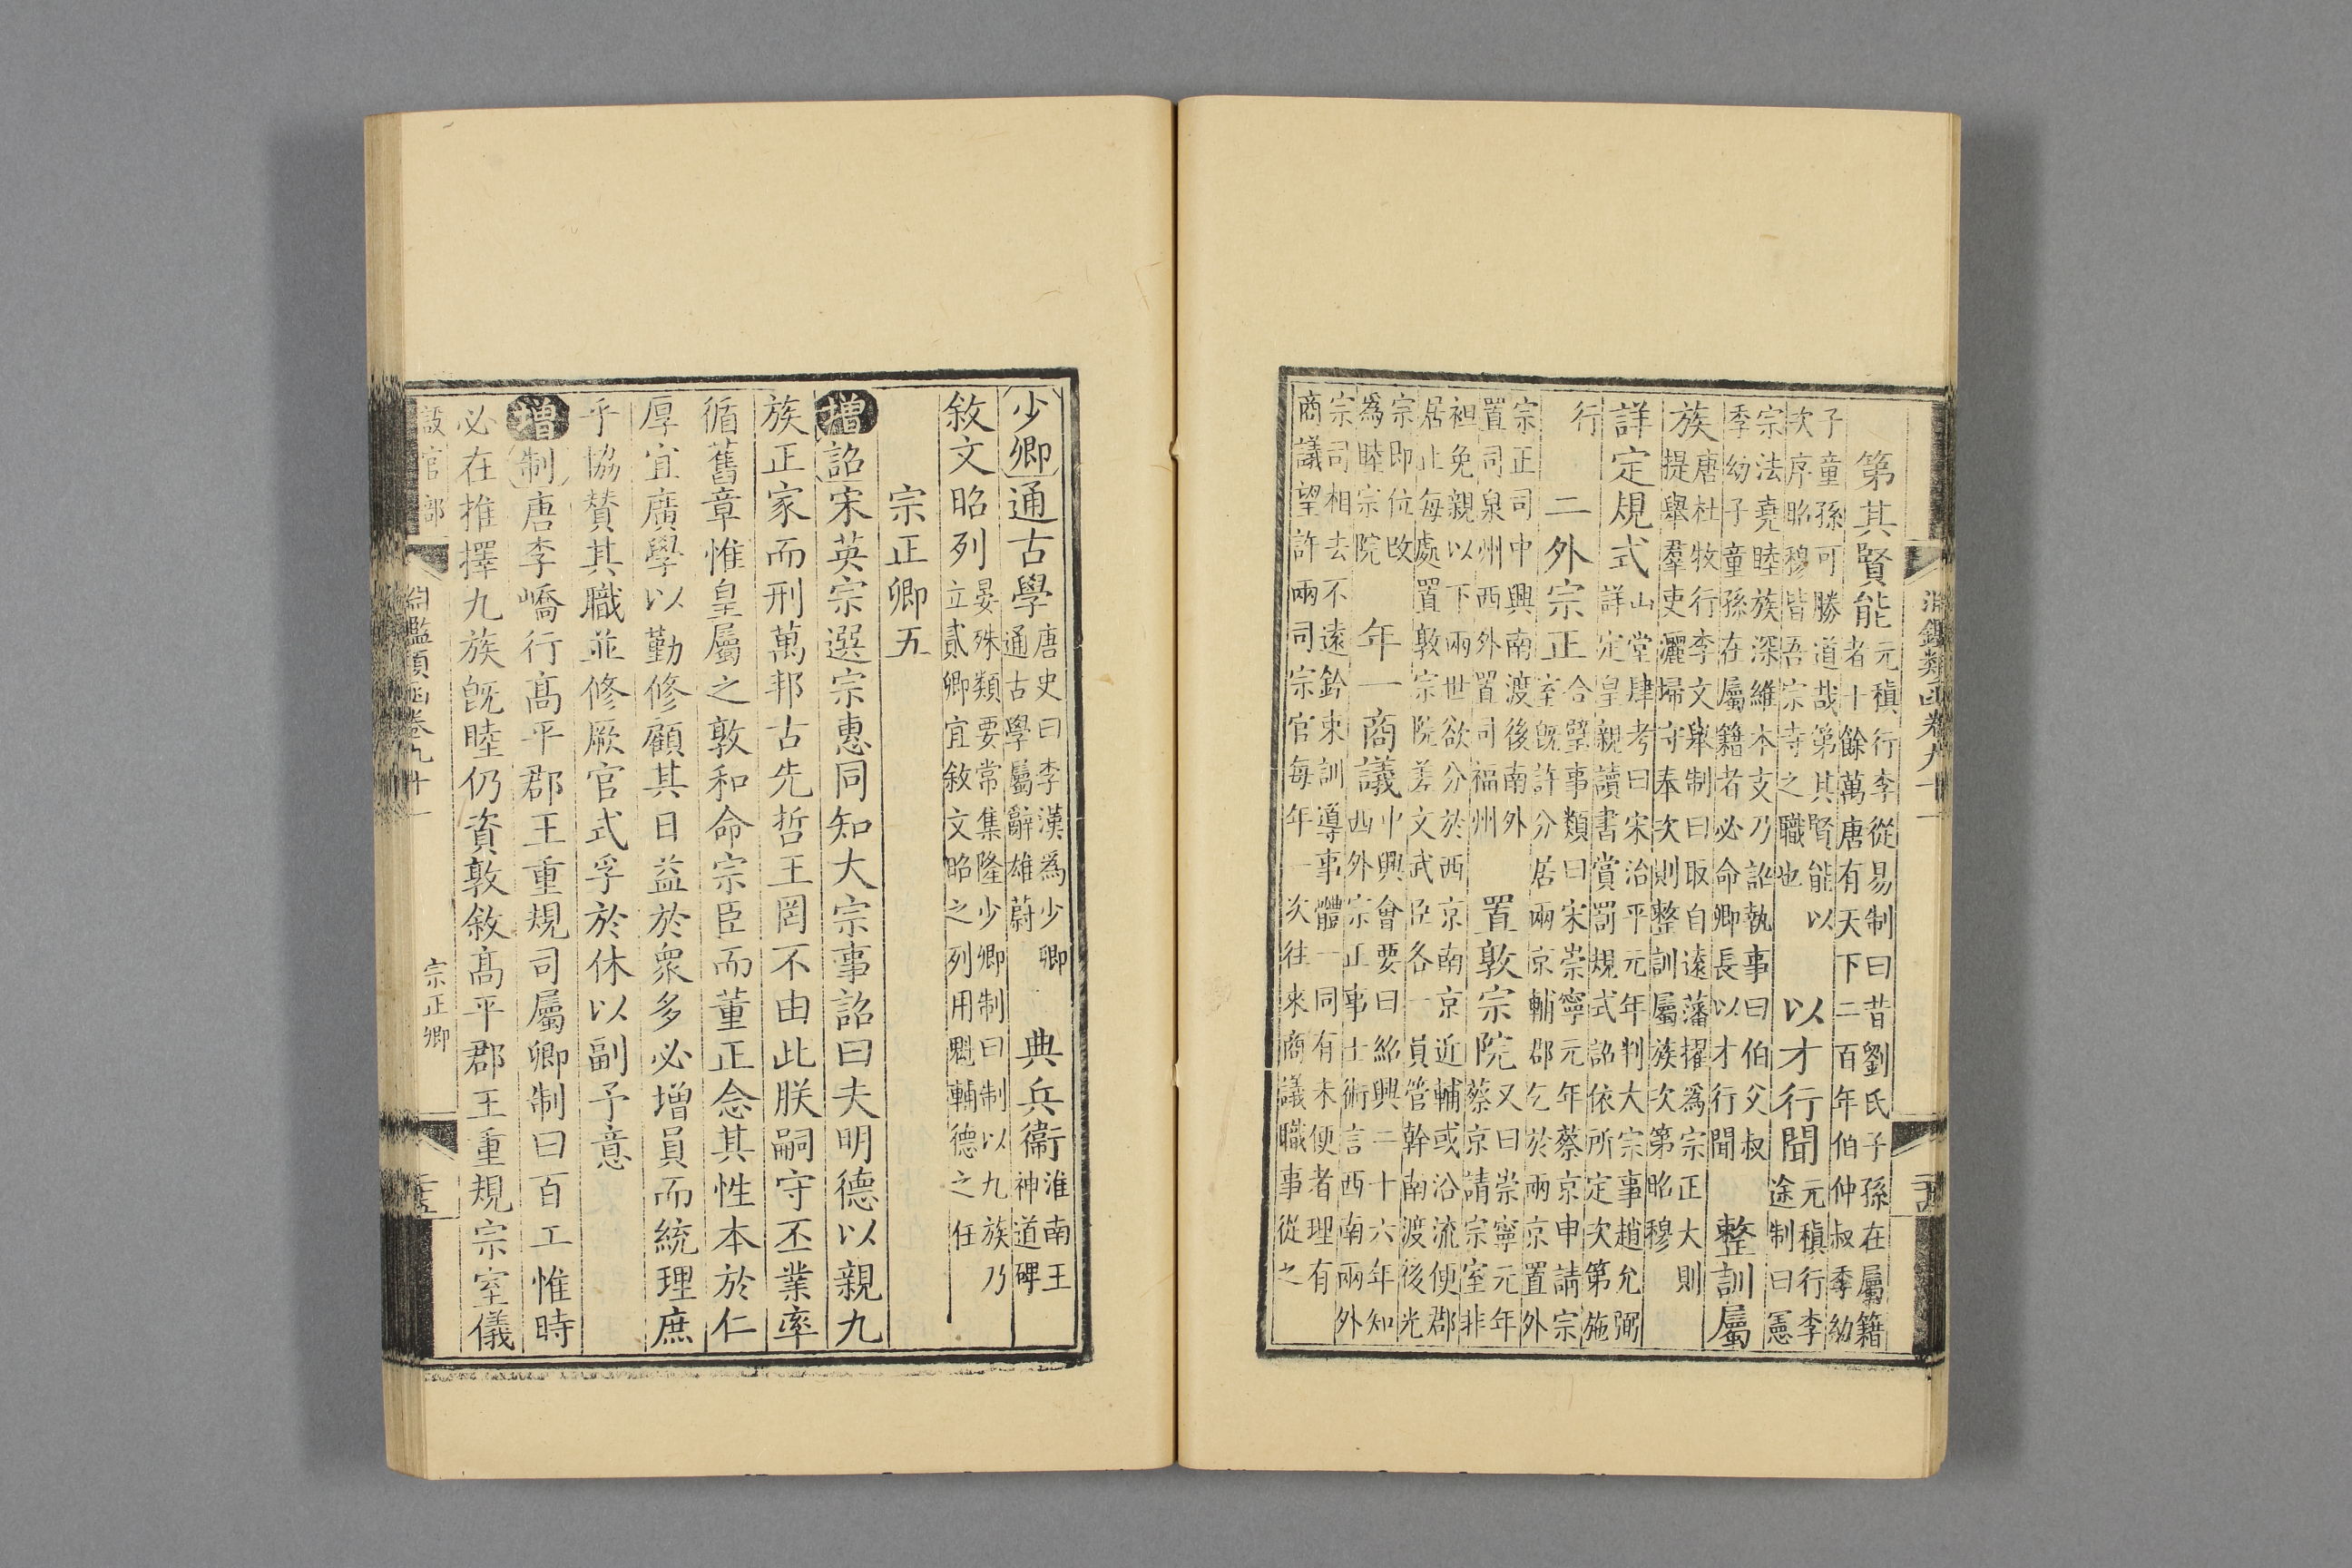 淵鑑類函卷九十一
二十四
第其賢能
元稹行李從易制曰昔劉氏子孫在屬籍
者十餘萬唐有天下二百年伯仲叔季幼
子童孫可勝道哉第其賢能以
次序昭穆皆吾宗寺之職也
以才行聞
元稹行李
途制曰憲
宗法堯睦族深維本支乃詔執事曰伯父叔
季幼子童孫在屬籍者必命卿長以才行聞
整訓屬
族
唐杜牧行李文舉制曰取自遠藩擢爲宗正大則
提舉羣吏灑掃守奉次則整訓屬族次第昭穆
詳定規式
山堂肆考曰宋治平元年判大宗事趙允弼
詳定皇親讀書賞罰規式詔依所定次第施
行
二外宗正
合璧事類曰宋崇寧元年蔡京申請宗
室旣許分居兩京輔郡乞於兩京置外
宗正司中興南渡後南外
置司泉州西外置司福州
置敦宗院
又曰崇寧元年
蔡京請宗室非
袒免親以下兩世欲分於西京南京近輔或沿流便郡
居止每處置敦宗院差文武臣各一員管幹南渡後光
宗即位改
爲睦宗院
年一商議
中興會要曰紹興二十六年知
西外宗正事士術言西南兩外
宗司相去不遠鈐束訓導事體一同有未便者理有
商議望許兩司宗官每年一次往來商議職事從之
少卿
通古學
唐史曰李漢爲少卿
通古學屬辭雄蔚
典兵衞
淮南王
神道碑
敘文昭列
晏殊類要常集隆少卿制曰制以九族乃
立貳卿宜敘文昭之列用覬輔德之任
宗正卿五
增詔宋英宗選宗惠同知大宗事詔曰夫明德以親九
族正家而刑萬邦古先哲王罔不由此朕嗣守丕業率
循舊章惟皇屬之敦和命宗臣而董正念其性本於仁
厚宜廣學以勤修顧其日益於衆多必增員而統理庶
乎協贊其職並修厥官式孚於休以副予意
增制唐李嶠行髙平郡王重規司屬卿制曰百工惟時
必在推擇九族旣睦仍資敦敘髙平郡王重規宗室儀
設官部
淵鑑類函卷九十一
宗正卿
二十五